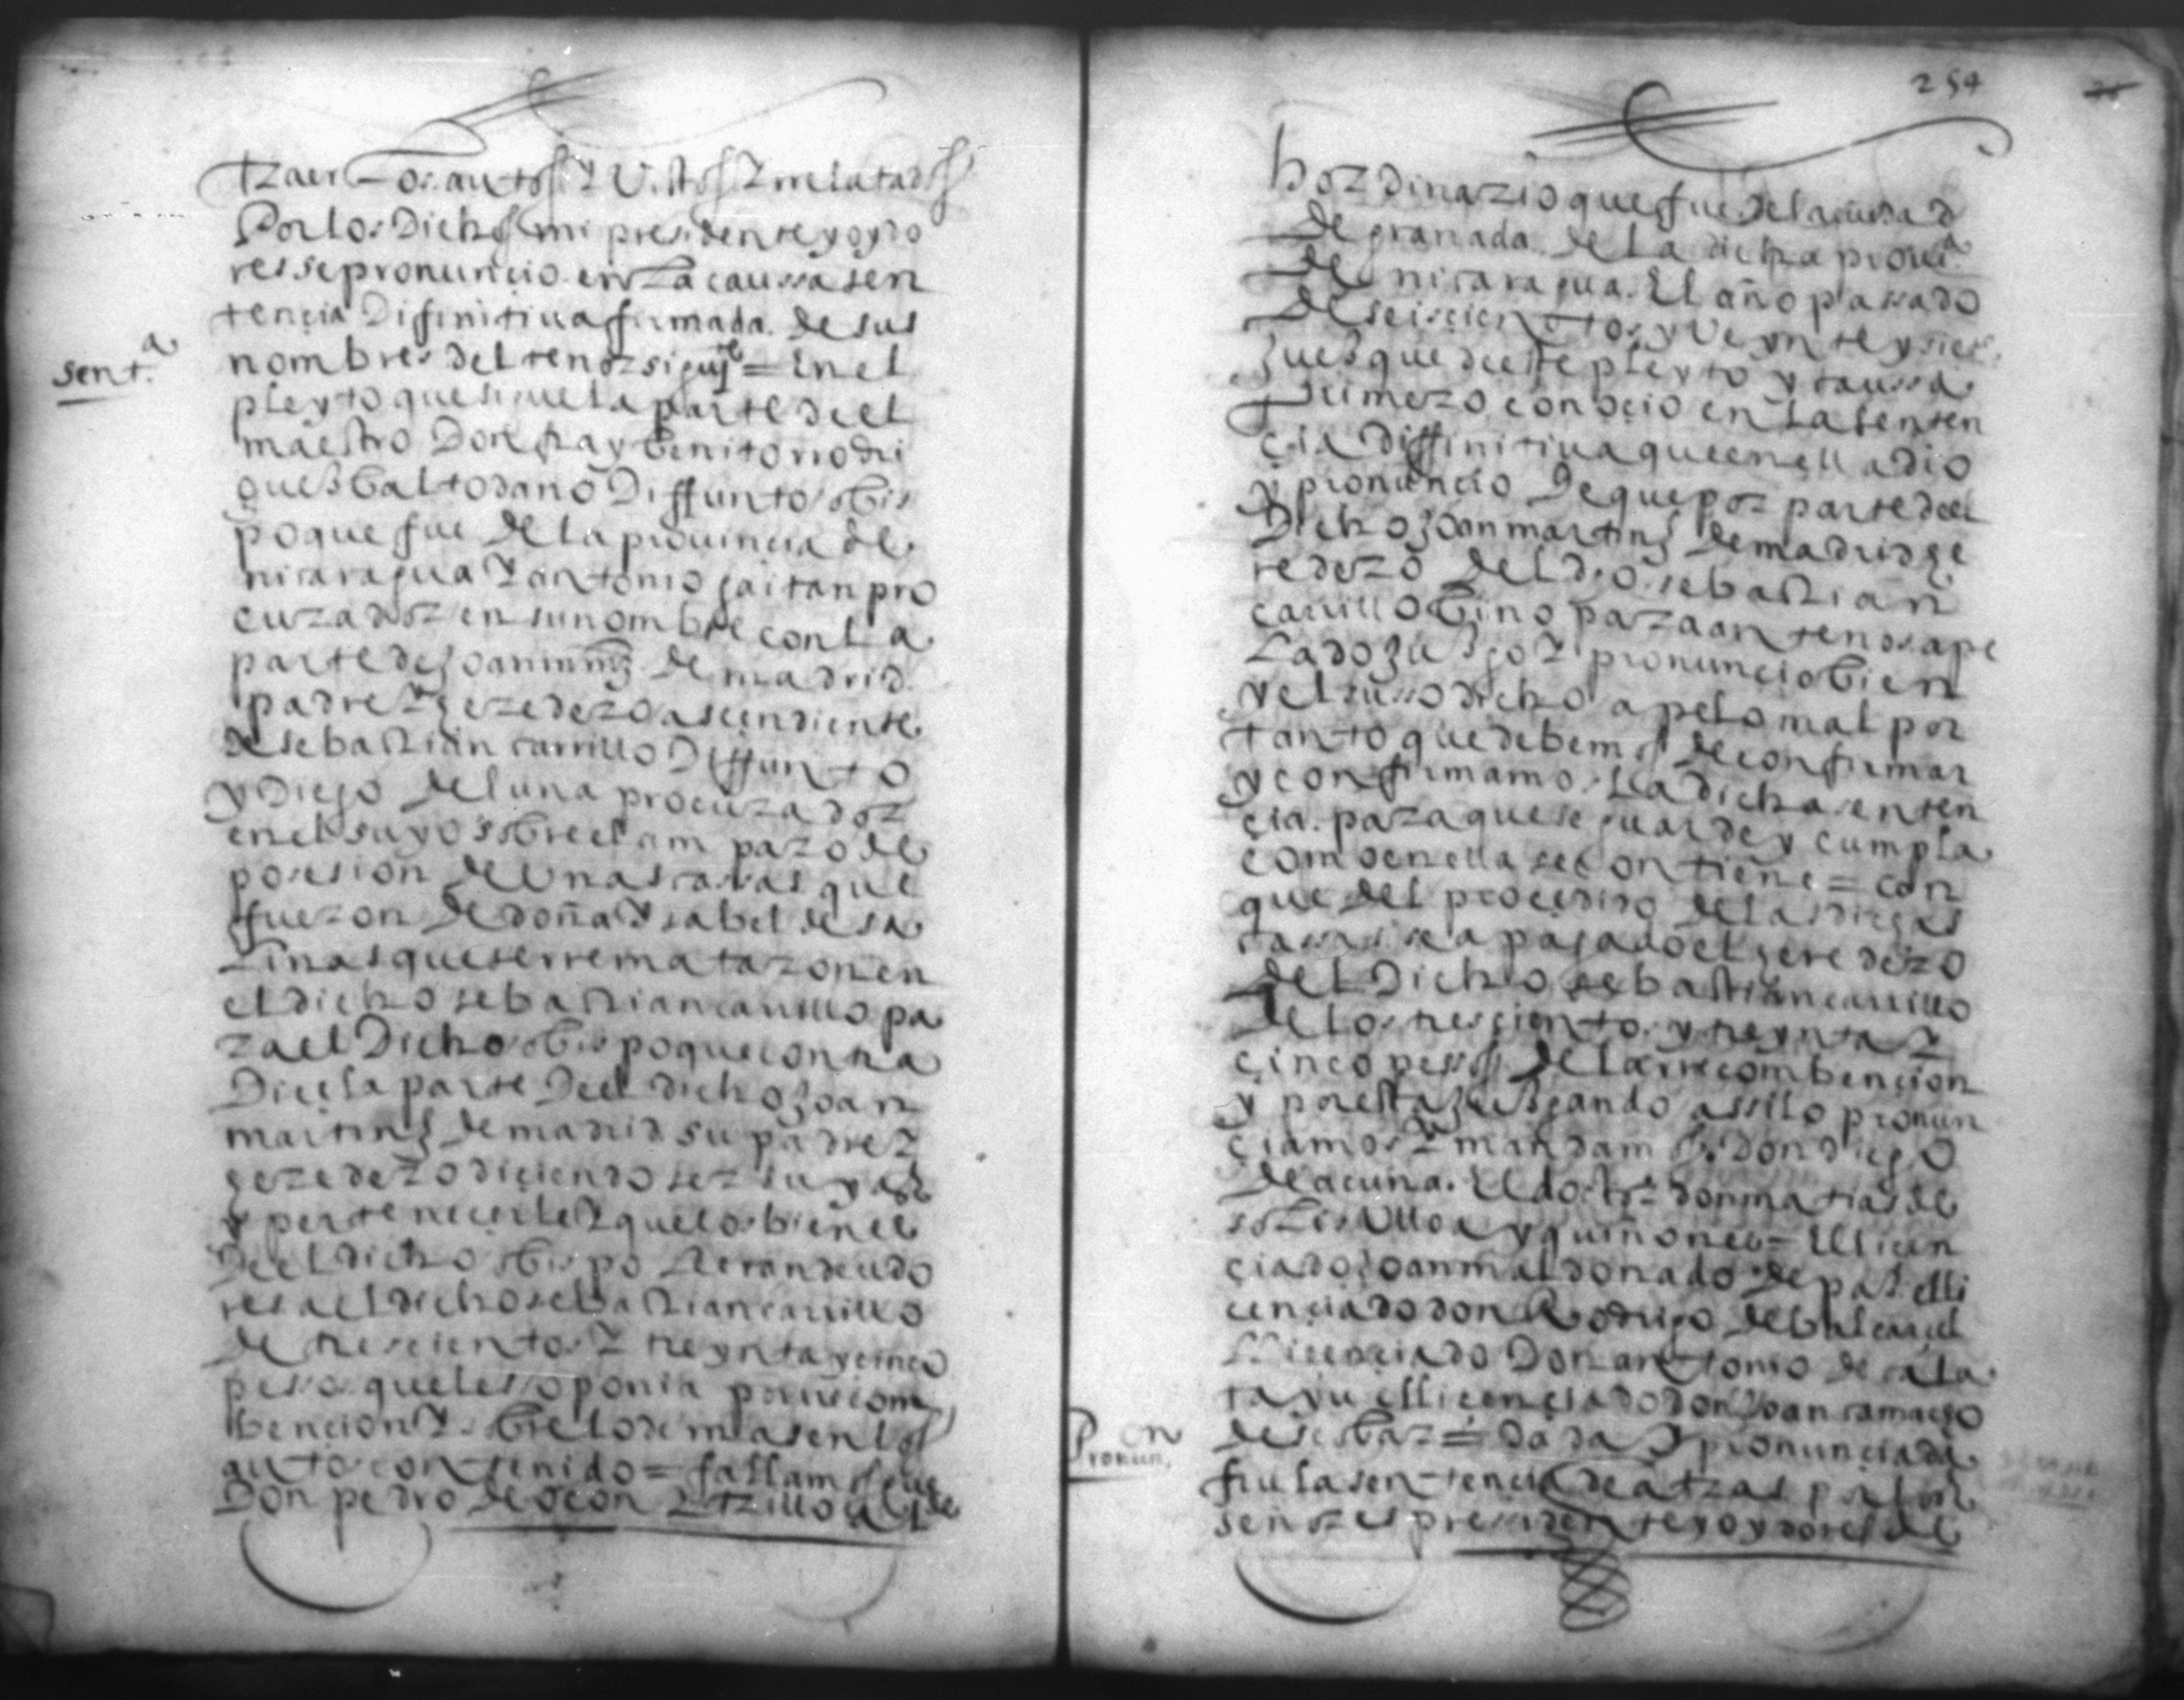 traer los autos y Vistos y rrelatados
Por los Dichos mi presidente y oydo
res se pronuncio en la caussa sen
tencia Diffinitiua firmada de sus
sent.a
nombres del tenor siguite = En el
pleyto que sigue la parte de el
maestro Don fray benito rrodri
gues baltodano Diffunto obis
po que fue de la prouincia de
nicaragua y antonio gaitan pro
curador en su nombre con la
parte de joan mrns de madrid
padre y eredero ascendiente
de sebastian carrillo Diffunto
y Diego de luna procurador
en el suyo sobre el amparo de
posesion de Unas cassas que
fueron de doña ysabel de sa
linas que se rremataron en
el dicho sebastian carrillo pa
ra el Dicho obispo que contra
Dice la parte De el dicho joan
martins de madrid su padre y
eredero diciendo ser suyas
y pertenecerle y que los bienes
De el dicho obispo eran deudo
res a el dicho sebastian carrillo
de trescientos y treynta y cinco
pessos que les oponia por rrecom
bencion y sobre lo demas en los
autos contenido = fallamos que
Don pedro de leon y trillo alcde
254
hordinario que fue de la ciudad
de granada de la dicha proui.a
de nicaragua El año passado
de seiscientos y Veynte y siete
jues que de este pleyto y caussa
primero conocio en la senten
cia diffinitiua que en ella dio
y pronuncio De que por parte de el
Dicho joan martins de madrid ge
redero del dho sebastian
carrillo bino para ante nos ape
lado jusgo y pronuncio bien
y el susso dicho apelo mal por
tanto que debemos de confirmar
y confirmamos La dicha senten
cia para que se guarde y cumpla
como en ella se contiene = con
que del procedido de las dichas
cassas sea pagado el geredero
del Dicho sebastian carrillo
de los trescientos y treynta y
cinco pessos de la rrecombencion
y por esta jusgando assi lo pronun
ciamos y mandamos Don diego
de acuña. El dotor don matias de
solis Ulloa y quiñones = El licen
ciado joan maldonado de pas elli
cenciado don Rodrigo de balcarcel
El licenciado Don antonio de cala
tayu ellicenciado don Joan camargo
Pronun.on
de escobar = dada y pronunciada
fiu la sentencia de atras por los
señores presidente y oydores de